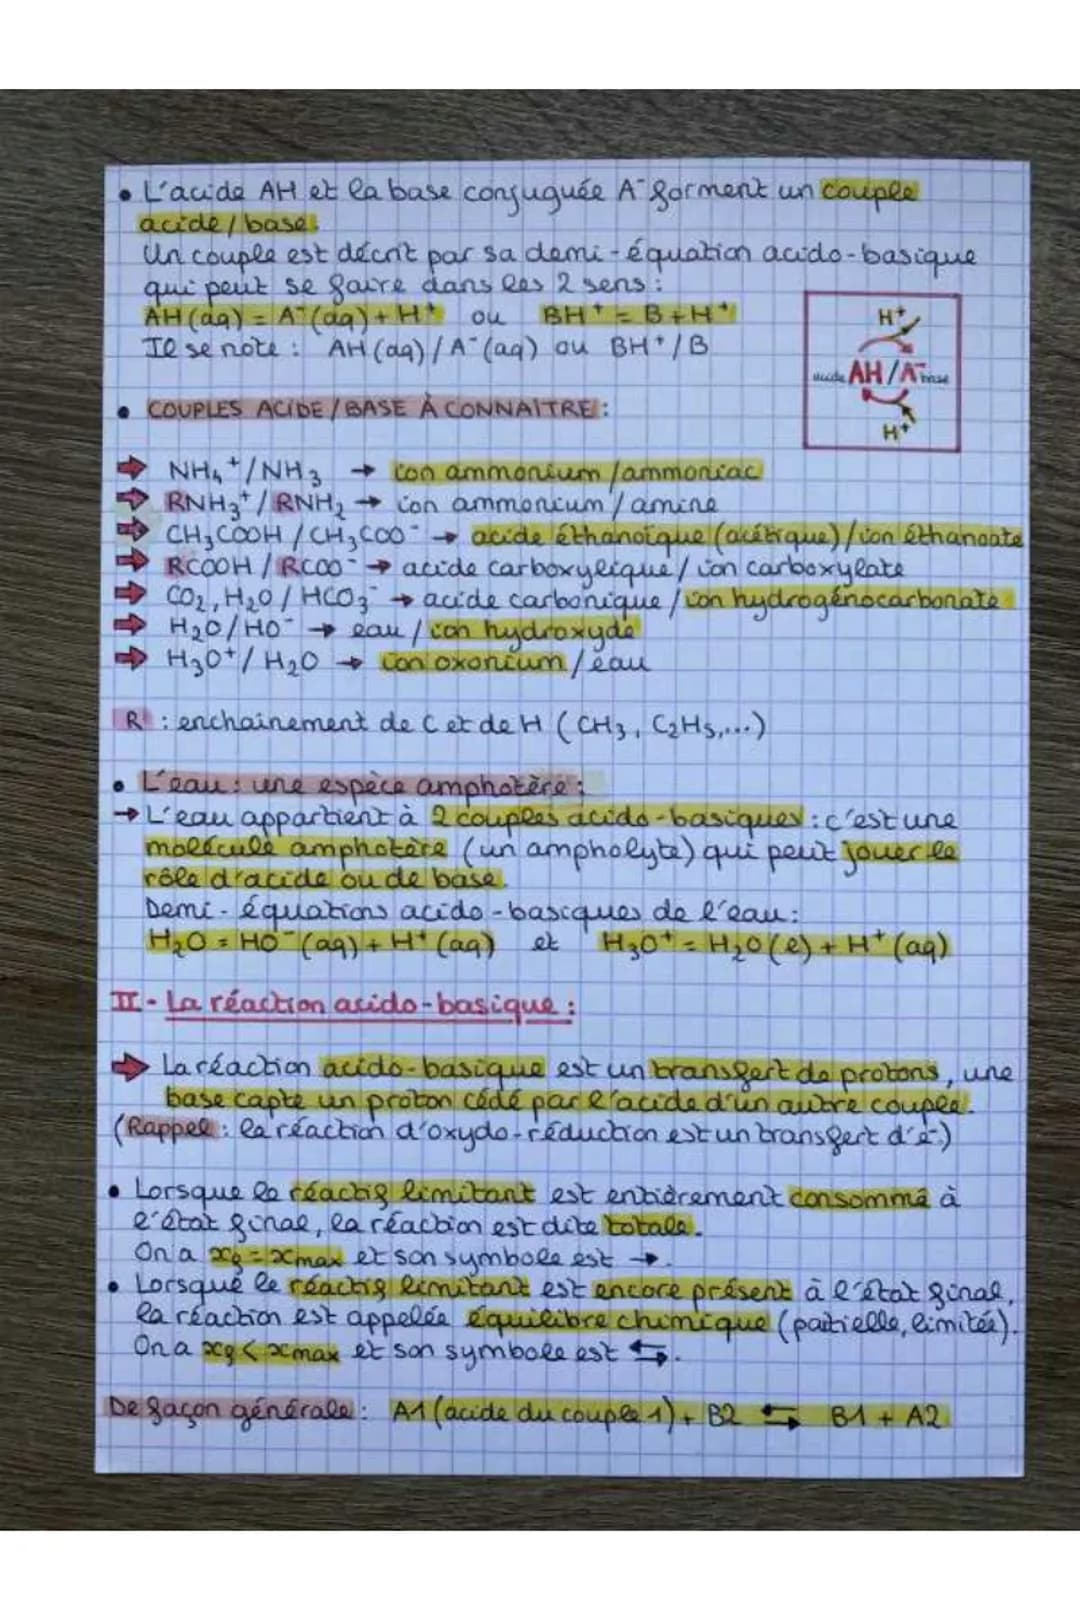 • L'acide AH et la base conjuguée A⁻ forment un couple
acide / base.
Un couple est décrit par sa demi-équation acido-basique
qui peut se faire dans les 2 sens :
AH (aq) = A⁻ (aq) + H⁺ ou BH⁺ = B + H⁺
Il se note : AH (aq) / A⁻ (aq) ou BH⁺ / B
H⁺
acide AH / A⁻ base
H⁺
• COUPLES ACIDE / BASE À CONNAÎTRE :
➡ NH₄⁺ / NH₃ → ion ammonium / ammoniac
➡ RNH₃⁺ / RNH₂ → ion ammonium / amine
➡ CH₃COOH / CH₃COO⁻ → acide éthanoïque (acétique) / ion éthanoate
➡ RCOOH / RCOO⁻ → acide carboxylique / ion carboxylate
➡ CO₂, H₂O / HCO₃⁻ → acide carbonique / ion hydrogénocarbonate
➡ H₂O / HO⁻ → eau / ion hydroxyde
➡ H₃O⁺ / H₂O → ion oxonium / eau
R : enchainement de C et de H (CH₃, C₂H₅,...)
• L'eau : une espèce amphotère :
→ L'eau appartient à 2 couples acido-basiques : c'est une
molécule amphotère (un ampholyte) qui peut jouer le
rôle d'acide ou de base.
Demi-équations acido-basiques de l'eau :
H₂O = HO⁻ (aq) + H⁺ (aq) et H₃O⁺ = H₂O (l) + H⁺ (aq)
II - La réaction acido-basique :
➡ La réaction acido-basique est un transfert de protons, une
base capte un proton cédé par l'acide d'un autre couple.
(Rappel : la réaction d'oxydo-réduction est un transfert d'e⁻.)
• Lorsque le réactif limitant est entièrement consommé à
l'état final, la réaction est dite totale.
On a xf = xmax et son symbole est →.
• Lorsque le réactif limitant est encore présent à l'état final,
la réaction est appelée équilibre chimique (partielle, limitée).
On a xf < xmax et son symbole est ⇆.
De façon générale : A1 (acide du couple 1) + B2 ⇆ B1 + A2